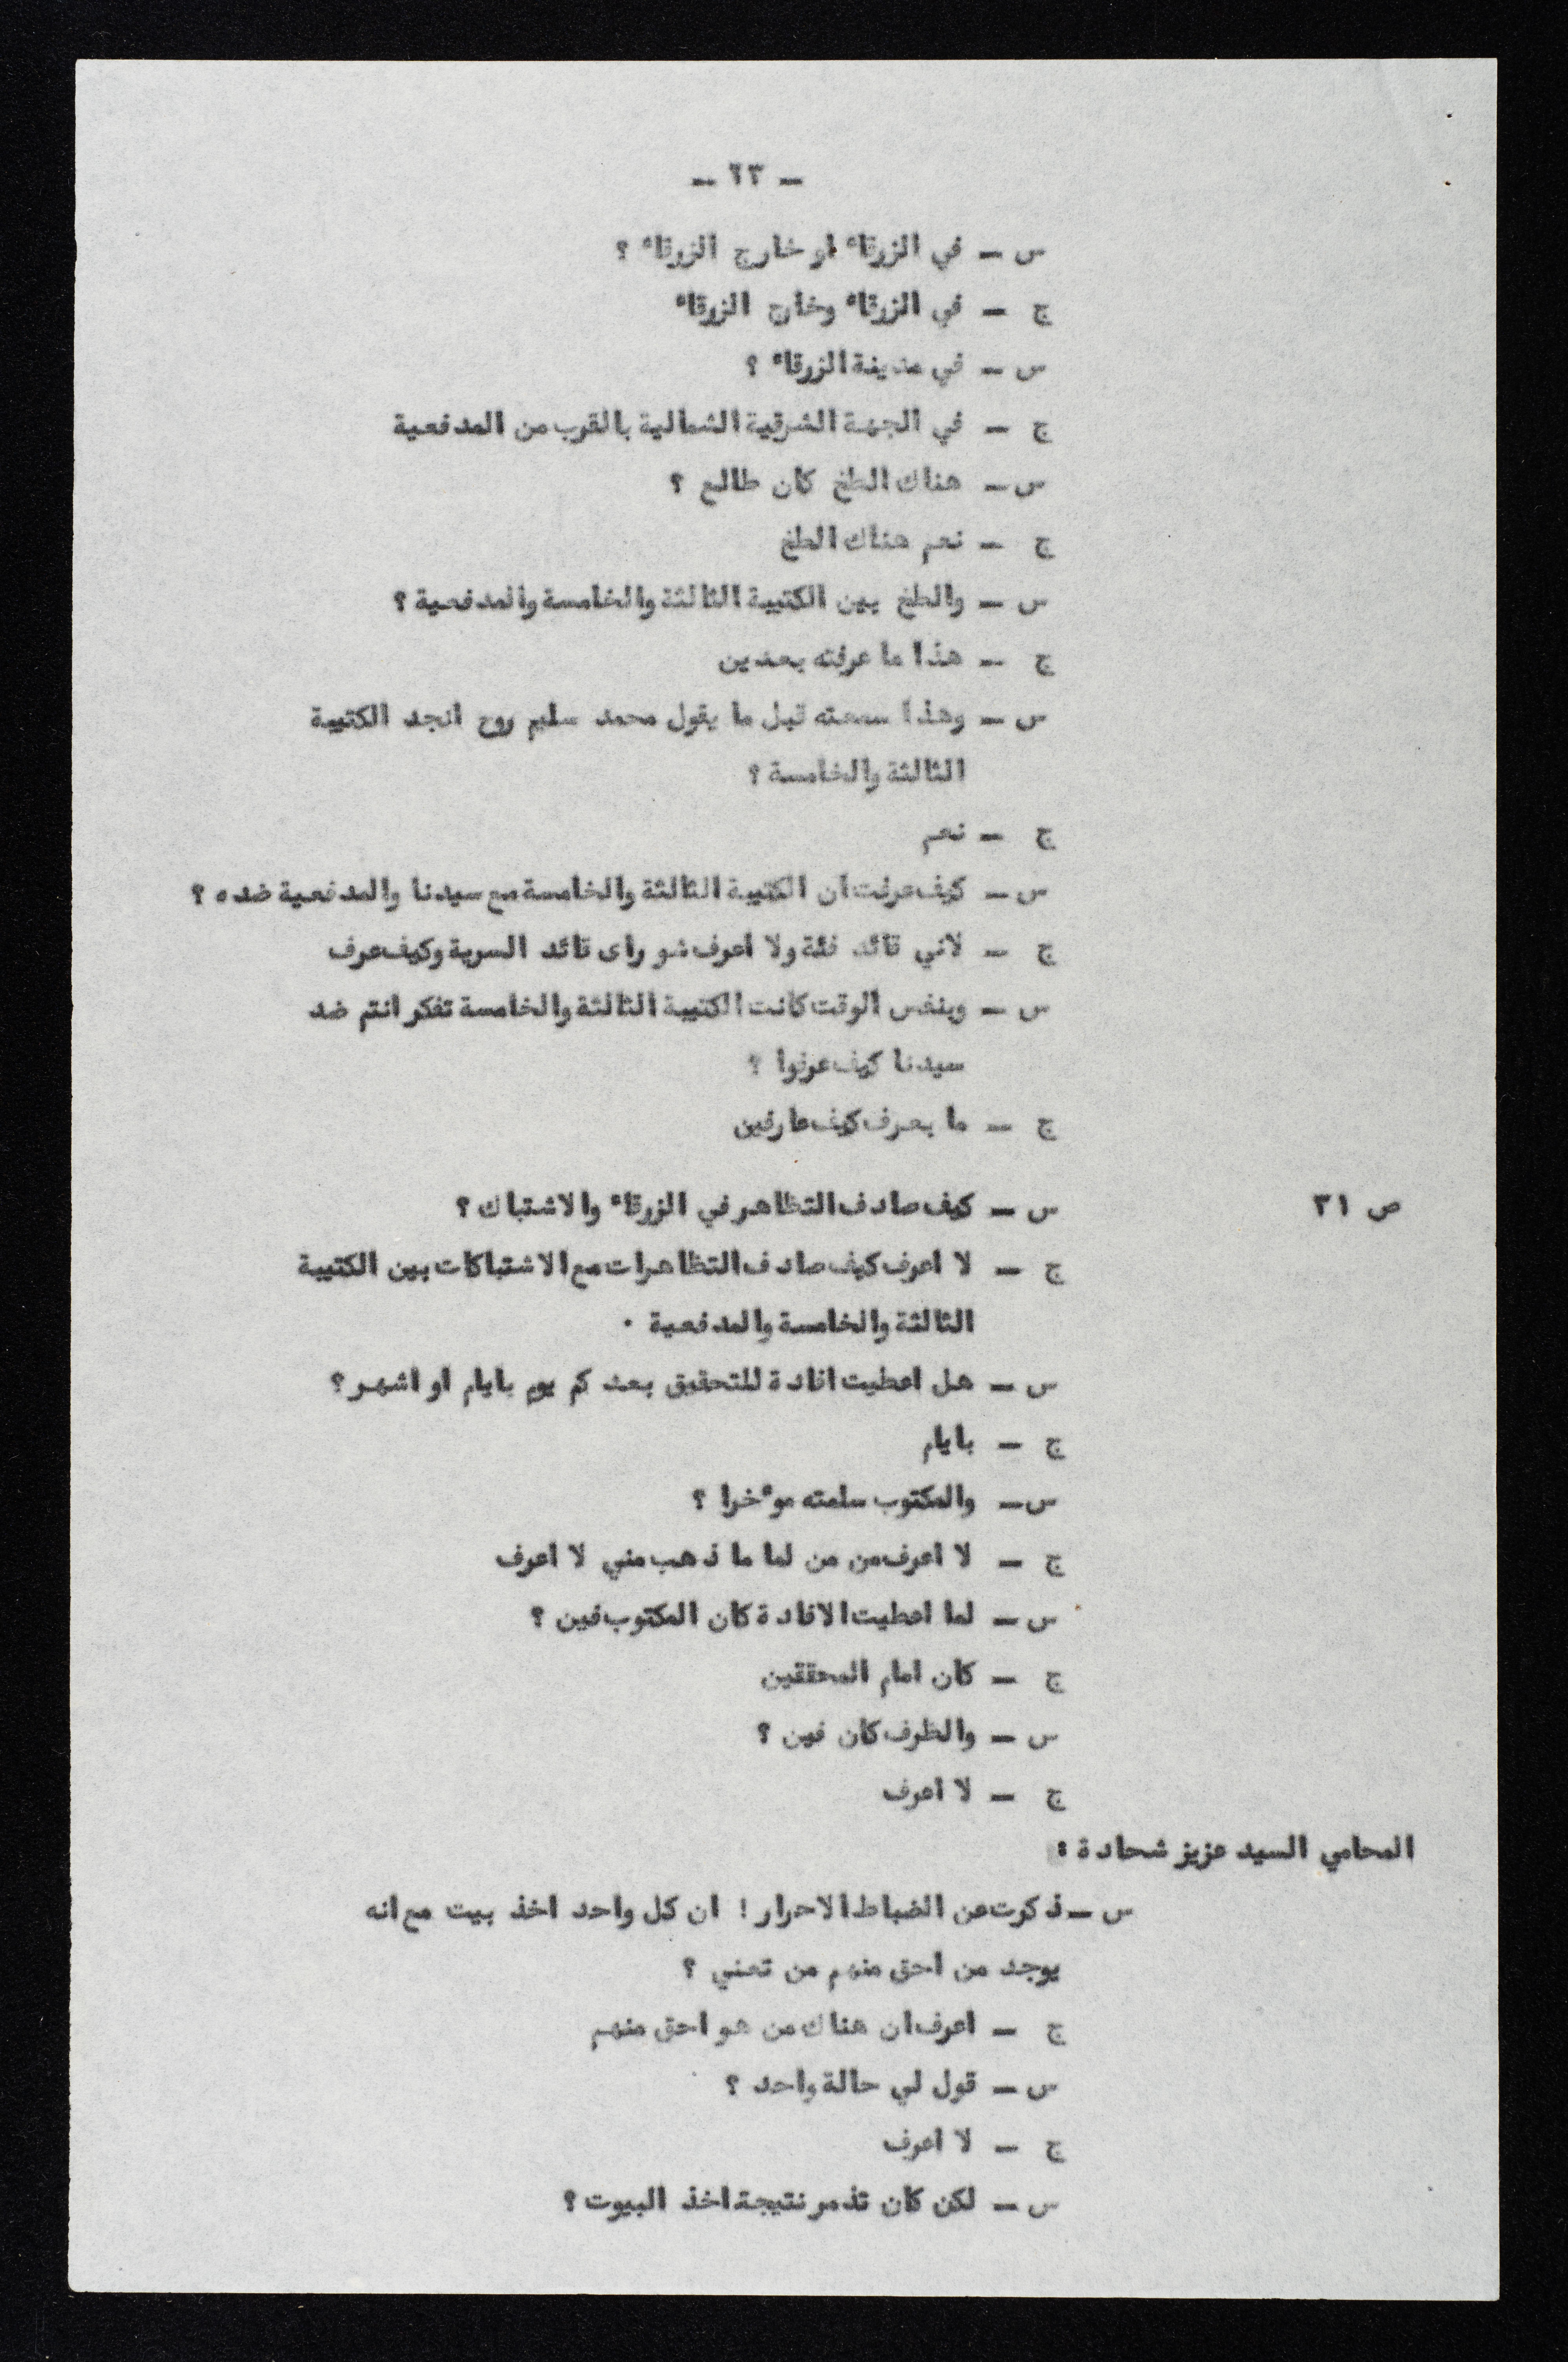 - ٦٣ -
س - في الزرقاء او خارج الزرقاء ؟
ج - في الزرقاء وخارج الزرقاء
س - في مدينة الزرقاء ؟
ج - في الجهة الشرقية الشمالية بالقرب من المدفعية
س - هناك الطخ كان طالع ؟
ج - نعم هناك الطخ
س - والطخ بين الكتيبة الثالثة والخامسة والمدفعية ؟
ج - هذا ما عرفته بعدين
س - وهذا سمعته قبل ما يقول محمد سليم روح انجد الكتيبة
الثالثة والخامسة ؟
ج - نعم
س - كيف عرفت ان الكتيبة الثالثة والخامسة مع سيدنا والمدفعية ضده ؟
ج - لاني قائد فئة ولا اعرف شو راى قائد السرية وكيف عرف
س - وبنفس الوقت كانت الكتيبة الثالثة والخامسة تفكر انتم ضد
سيدنا كيف عرفوا ؟
ج - ما بعرف كيف عارفين
ص ٣١ س - كيف صادف التظاهر في الزرقاء والاشتباك ؟
ج - لا اعرف كيف صادف التظاهرات مع الاشتباكات بين الكتيبة
الثالثة والخامسة والمدفعية .
س - هل اعطيت افادة للتحقيق بعد كم يوم بايام او اشهر ؟
ج - بايام
س - والمكتوب سلمته موءخرا ؟
ج - لا اعرف من من لما ما ذهب مني لا اعرف
س - لما اعطيت الافادة كان المكتوب فين ؟
ج - كان امام المحققين
س - والظرف كان فين ؟
ج - لا اعرف
المحامي السيد عزيز شحادة :
س - ذكرت عن الضباط الاحرار ! ان كل واحد اخذ بيت مع انه
يوجد من احق منهم من تعني ؟
ج - اعرف ان هناك من هو احق منهم
س - قول لي حالة واحد ؟
ج - لا اعرف
س - لكن كان تذمر نتيجة اخذ البيوت ؟